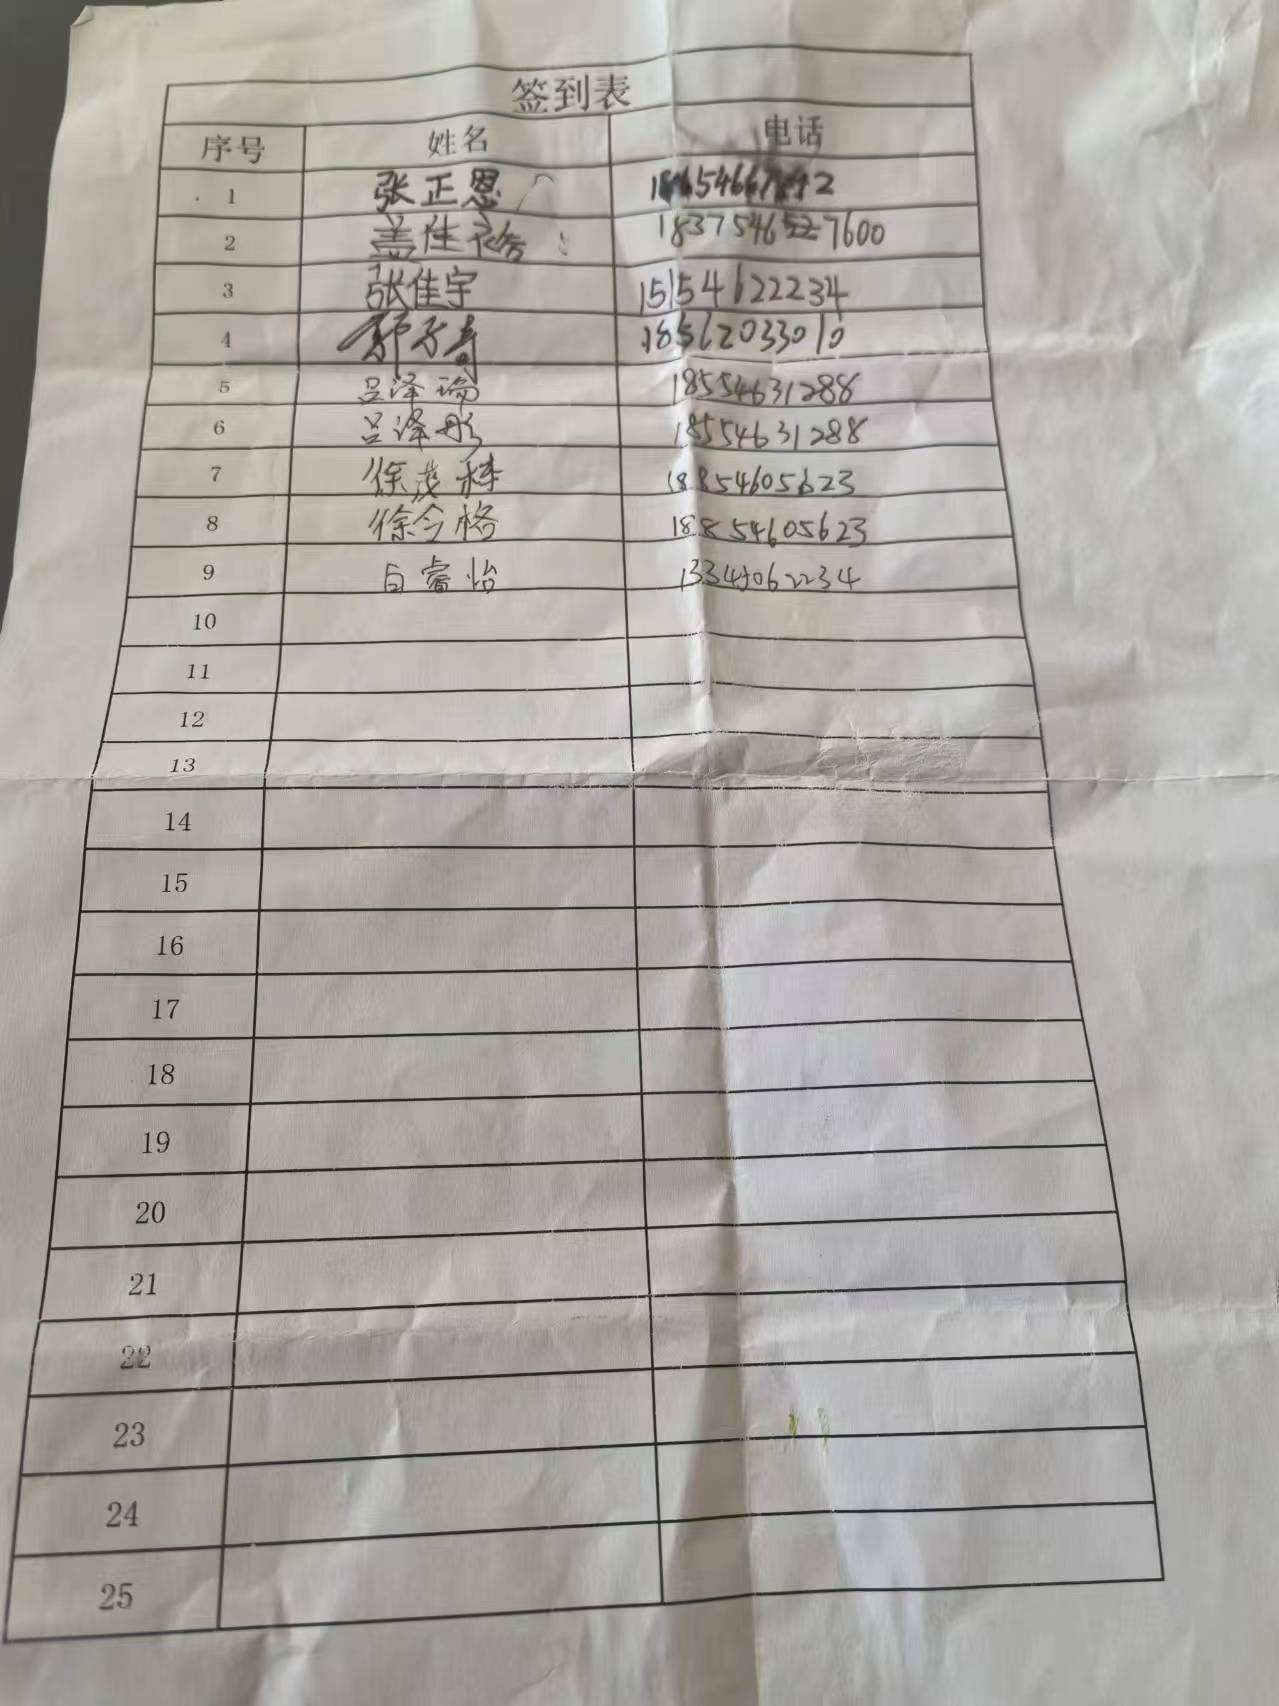 签到表
序号 姓名 电话
1 张正恩
2 盖佳
3 张佳宇 15154622234
4 郭子 18562033010
5 吕泽瑞 18554631288
6 吕泽彤 18554631288
7 徐茂林 18854605623
8 徐令格 18854605623
9 白睿怡 13345062234
10
11
12
13
14
15
16
17
18
19
20
21
22
23
24
25